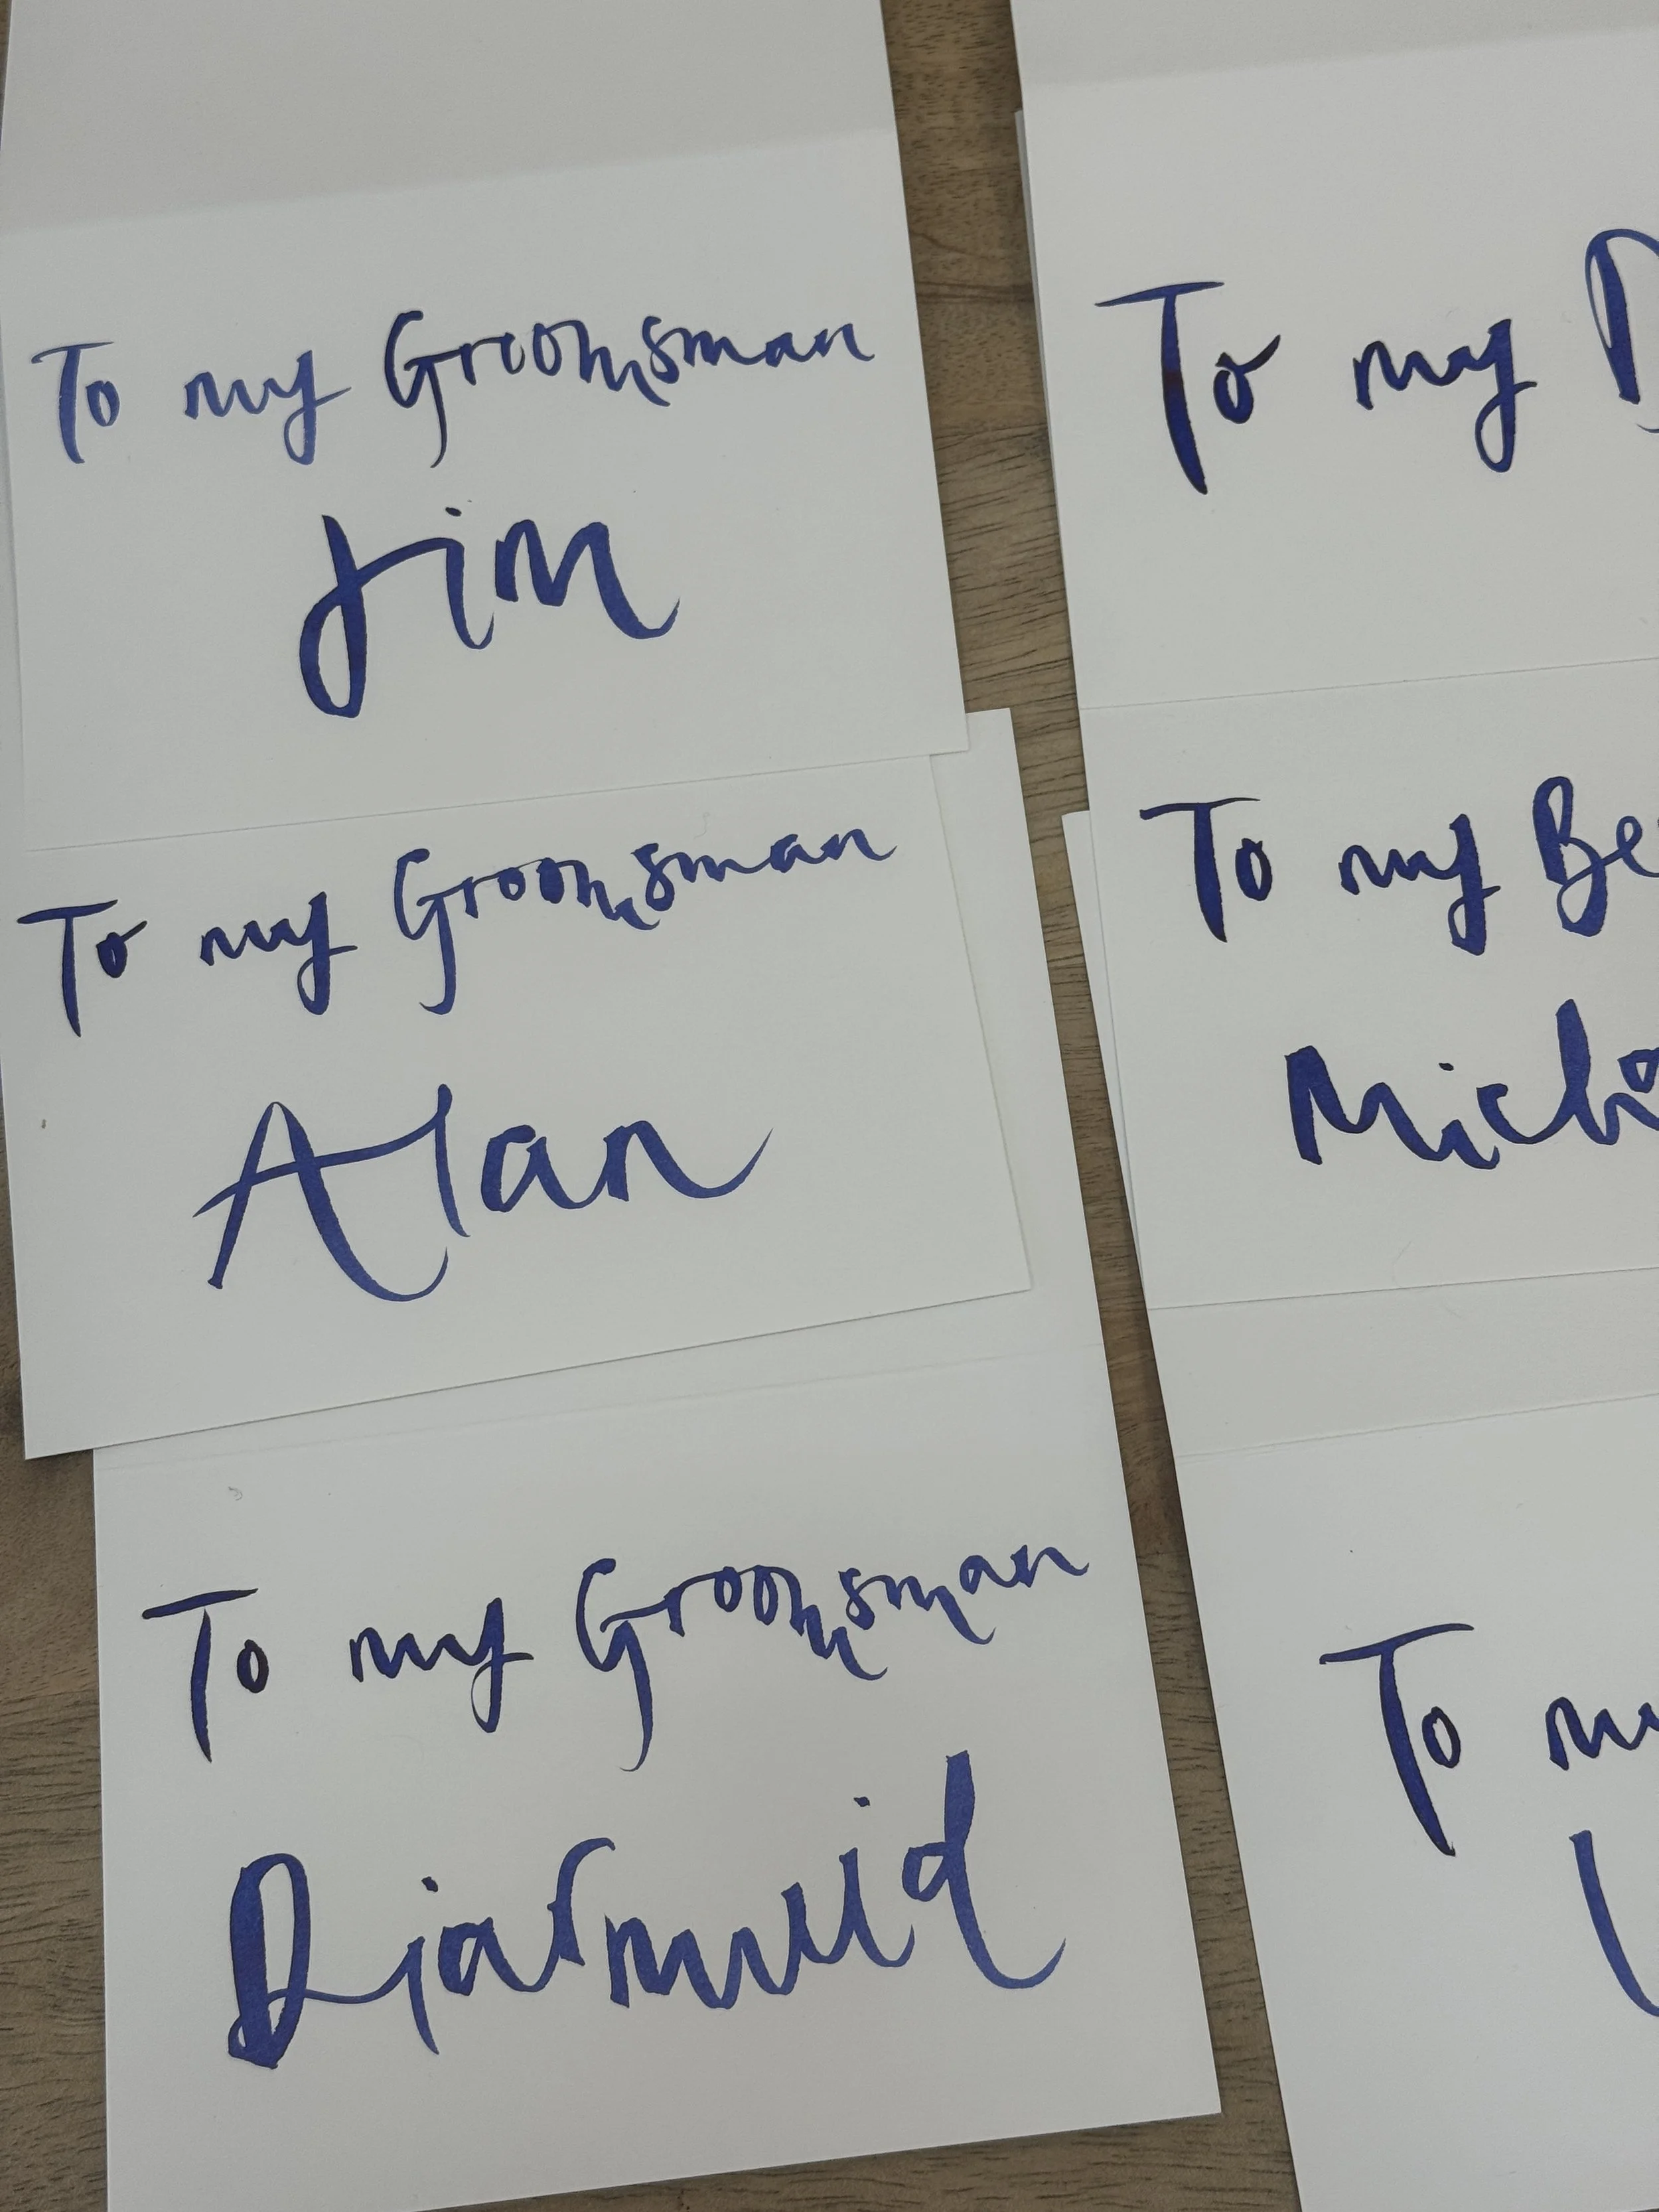 To my Groomsman
Jim
To my Groomsman
Alan
To my Groomsman
Diarmuid
To my
To my
To